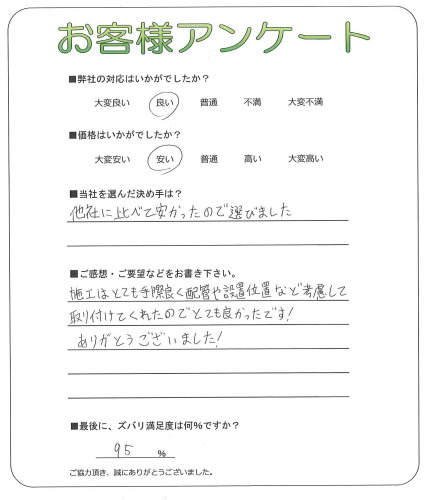 お客様アンケート
■弊社の対応はいかがでしたか？
大変良い 良い 普通 不満 大変不満
■価格はいかがでしたか？
大変安い 安い 普通 高い 大変高い
■当社を選んだ決め手は？
他社に比べて安かったので選びました
■ご感想・ご要望などをお書き下さい。
施工はとても手際良く配管や設置位置など考慮して
取り付けてくれたのでとても良かったです！
ありがとうございました！
■最後に、ズバリ満足度は何％ですか？
95 ％
ご協力頂き、誠にありがとうございました。